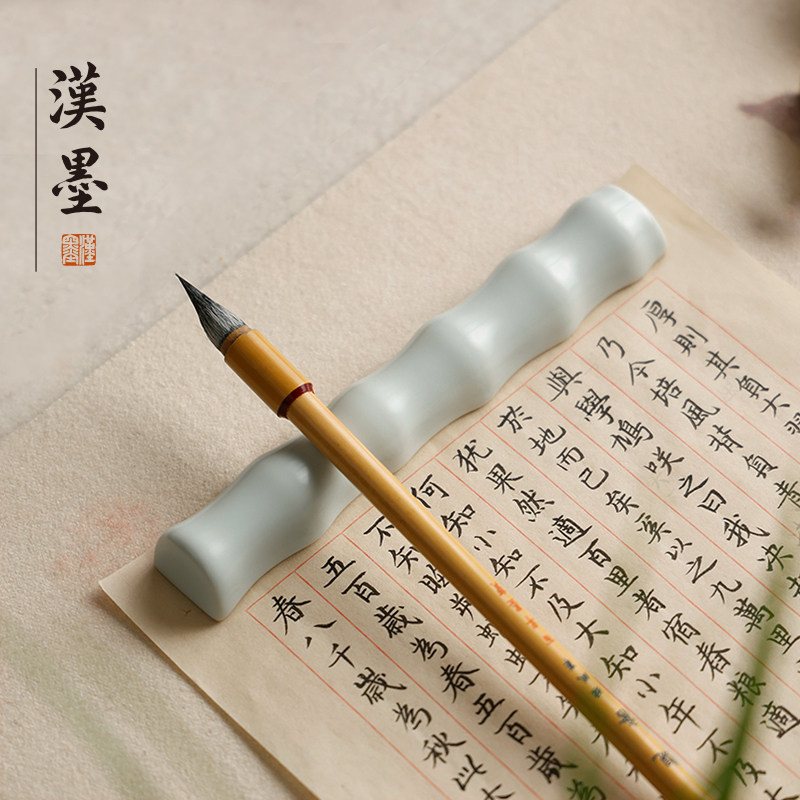 漢墨
漢墨
厚則其負大
乃今培風背負青
與學鳩咲之曰我决
於地而已矣奚以之九萬里
犹果然適百里者宿春粮適
何知小知不及大知小年不及
不知晦朔
五百歲為春五百歲為
春八千歲為秋此大